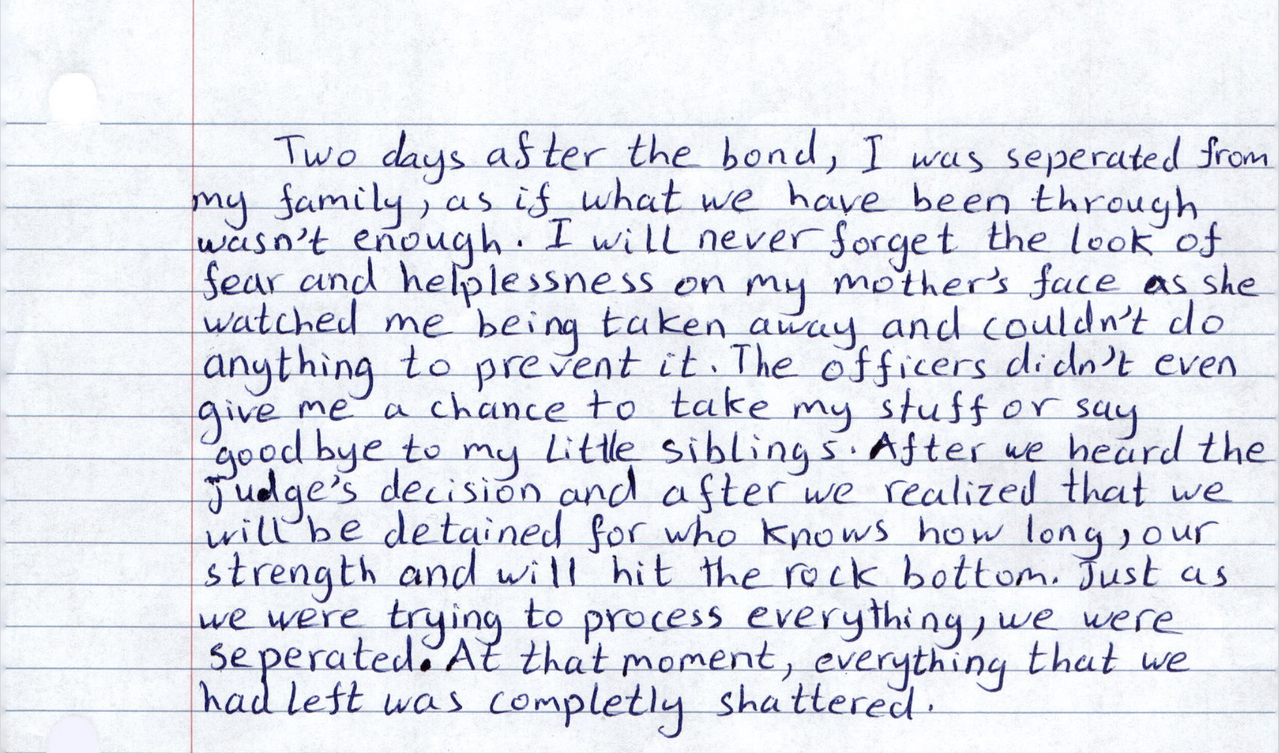 Two days after the bond, I was seperated from
my family, as if what we have been through
wasn't enough. I will never forget the look of
fear and helplessness on my mother's face as she
watched me being taken away and couldn't do
anything to prevent it. The officers didn't even
give me a chance to take my stuff or say
goodbye to my little siblings. After we heard the
judge's decision and after we realized that we
will be detained for who knows how long, our
strength and will hit the rock bottom. Just as
we were trying to process everything, we were
seperated. At that moment, everything that we
had left was completly shattered.